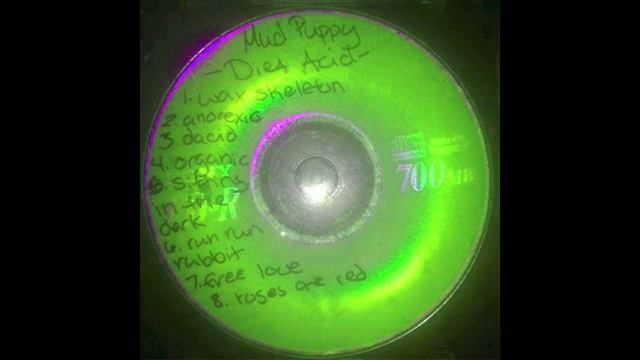 Mud Puppy
- Diet Acid -
1. wax skeleton
2. anorexic
3. dacid
4. organic
in the
dark
6. run run
rabbit
7. free love
8. roses are red
700 MB